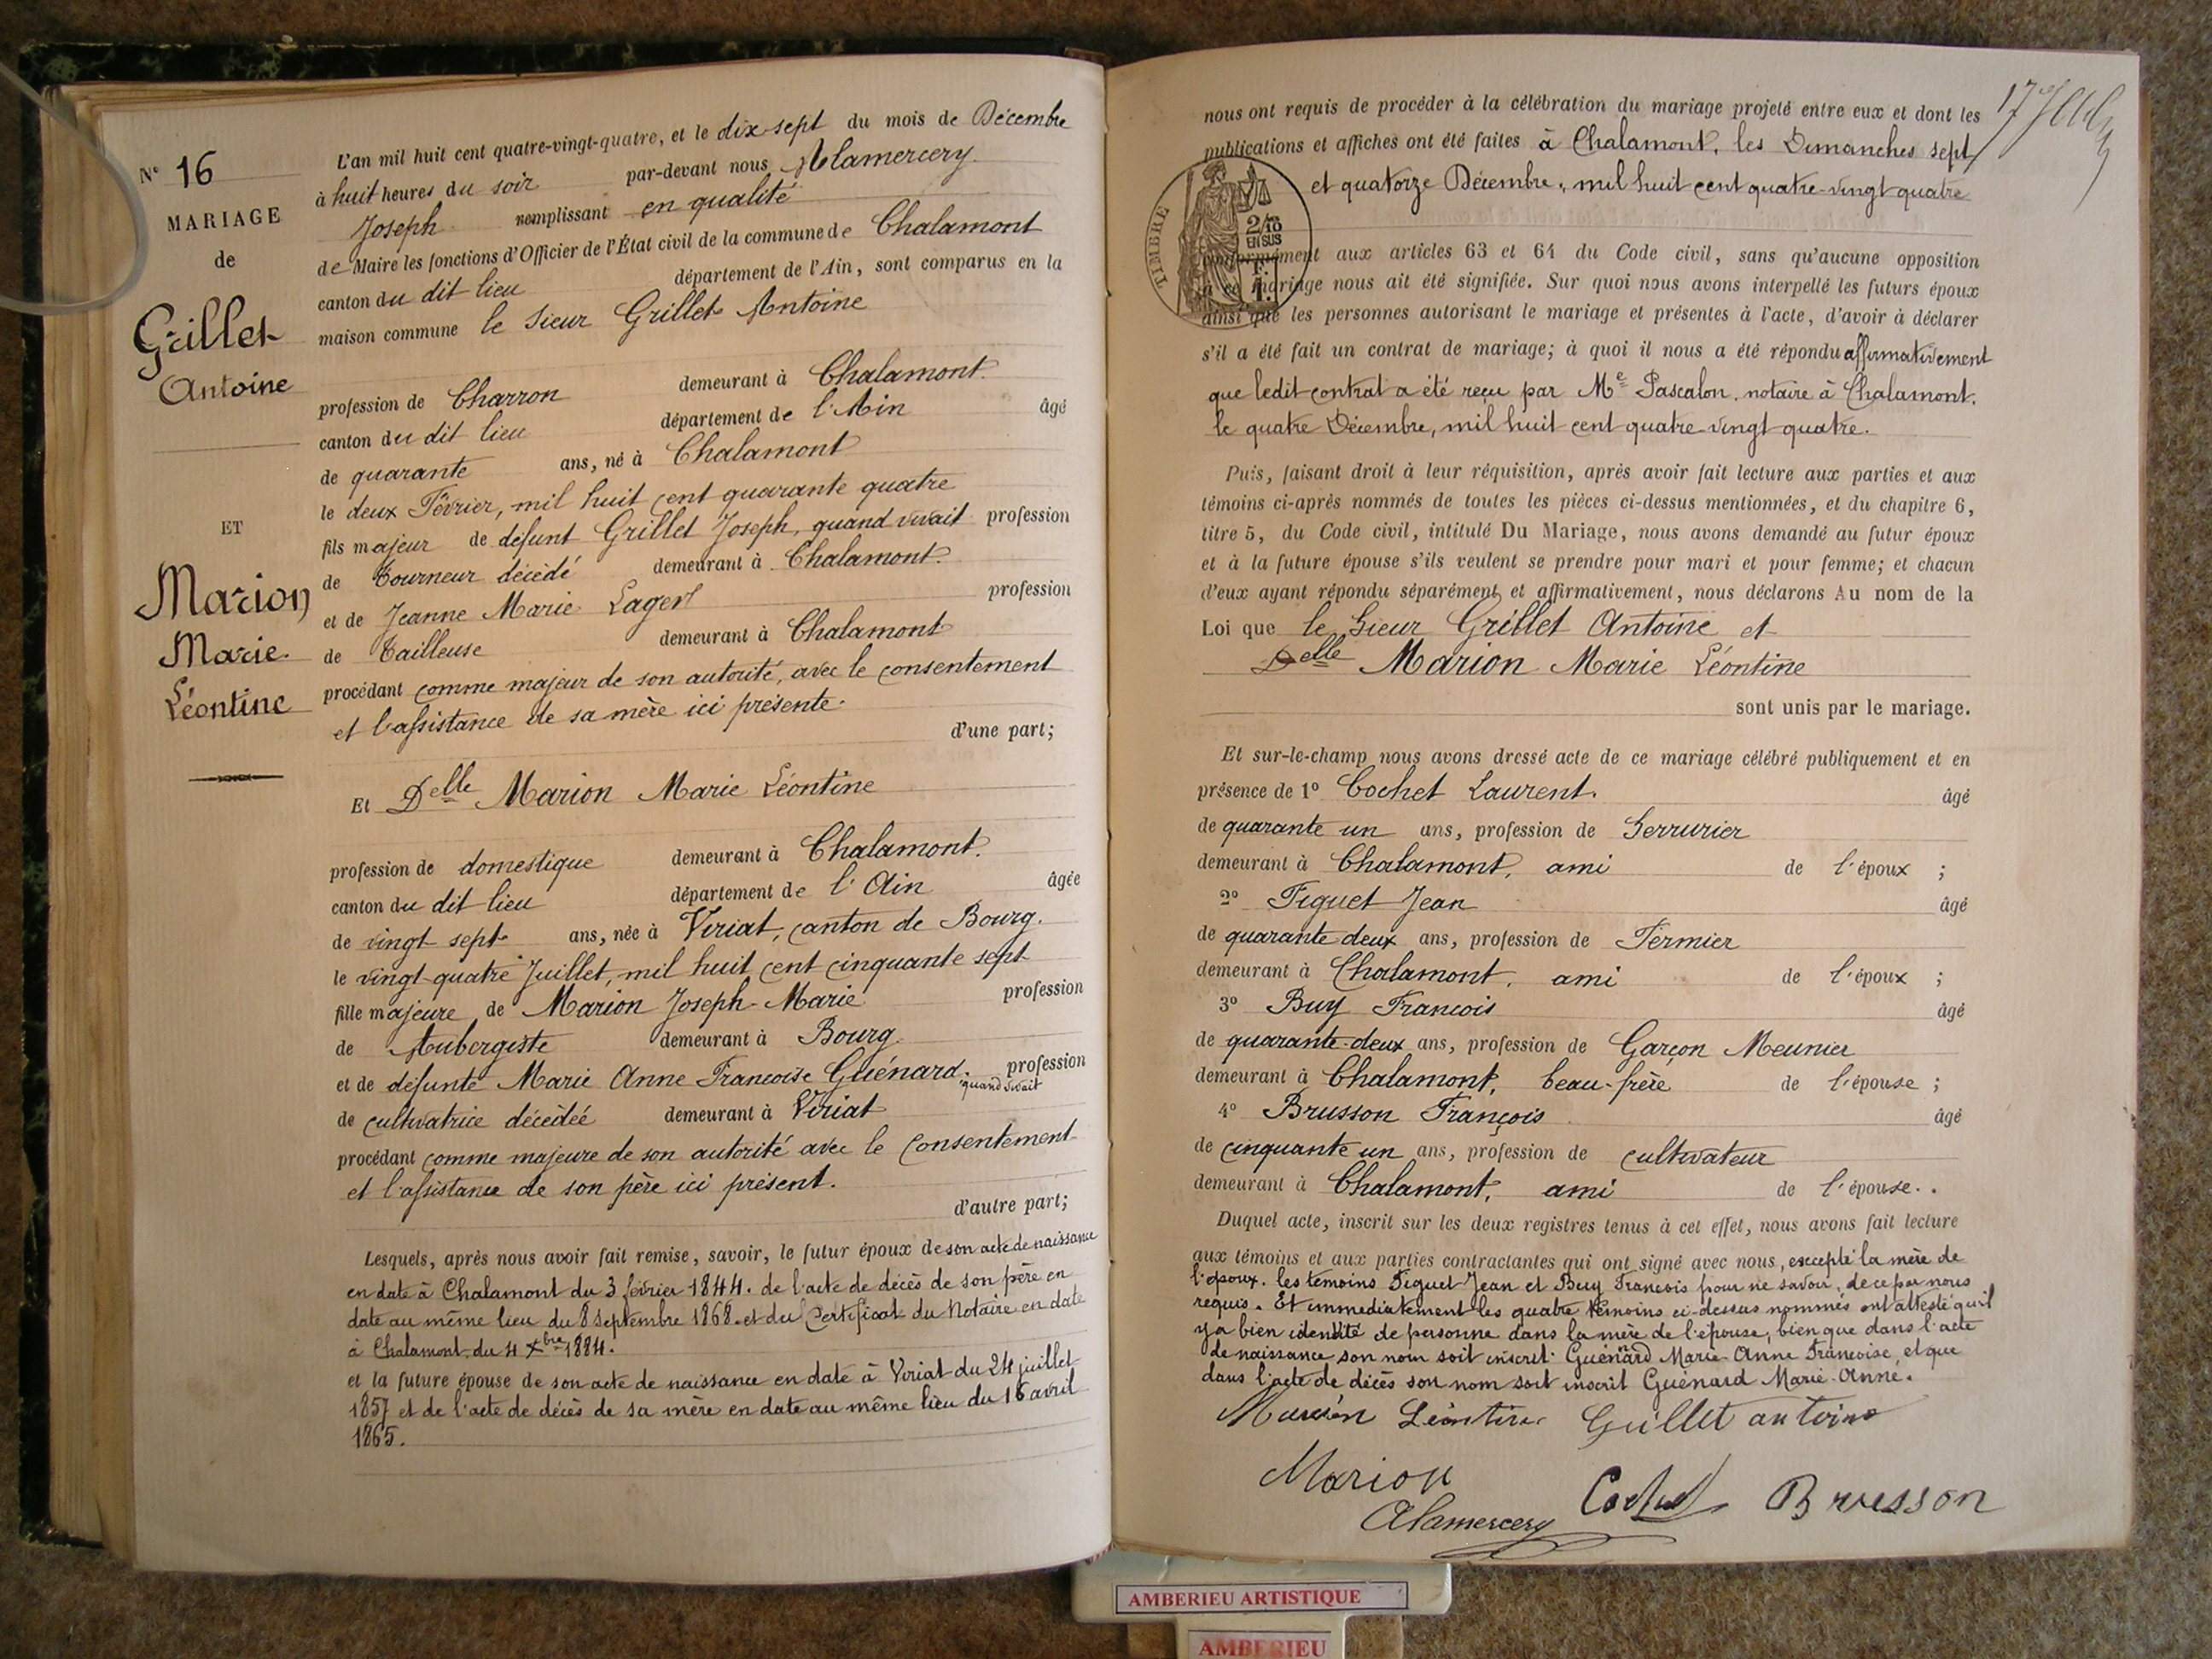 N° 16
MARIAGE
de
Grillet
Antoine
ET
Marion
Marie
Léontine
L'an mil huit cent quatre-vingt-quatre, et le dix sept du mois de Décembre
à huit heures du soir par-devant nous Alamercery
Joseph remplissant en qualité
de Maire les fonctions d'Officier de l'État civil de la commune de Chalamont
canton du dit lieu département de l'Ain, sont comparus en la
maison commune le Sieur Grillet Antoine
profession de Charron demeurant à Chalamont
canton du dit lieu département de l'Ain âgé
de quarante ans, né à Chalamont
le deux Février, mil huit cent quarante quatre
fils majeur de defunt Grillet Joseph, quand vivait profession
de Tourneur décédé demeurant à Chalamont
et de Jeanne Marie profession
de Tailleuse demeurant à Chalamont
procédant comme majeur de son autorité, avec le consentement
et l'assistance de sa mère ici présente.
d'une part;
Et Delle Marion Marie Léontine
profession de domestique demeurant à Chalamont.
canton du dit lieu département de l'Ain âgée
de vingt sept ans, née à Viriat, canton de Bourg.
le vingt-quatre Juillet, mil huit cent cinquante sept
fille majeure de Marion Joseph-Marie profession
de Aubergiste demeurant à Bourg.
et de défunte Marie Anne Francoise Guénard. quand vivait profession
de cultivatrice décédée demeurant à Viriat
procédant comme majeure de son autorité avec le consentement
et l'assistance de son père ici présent.
d'autre part;
Lesquels, après nous avoir fait remise, savoir, le futur époux de son acte de naissance
en date à Chalamont du 3 février 1844. de l'acte de décès de son père en
date au même lieu du 8 Septembre 1868. et du Certificat du Notaire en date
à Chalamont du 4 Xbre 1884.
et la future épouse de son acte de naissance en date à Viriat du 24 juillet
1857 et de l'acte de décès de sa mère en date au même lieu du 15 avril
1865.
nous ont requis de procéder à la célébration du mariage projeté entre eux et dont les
publications et affiches ont été faites à Chalamont, les Dimanches sept
et quatorze Décembre, mil huit cent quatre-vingt quatre
TIMBRE
2/10
EN SUS
conformément aux articles 63 et 64 du Code civil, sans qu'aucune opposition
à ce mariage nous ait été signifiée. Sur quoi nous avons interpellé les futurs époux
ainsi que les personnes autorisant le mariage et présentes à l'acte, d'avoir à déclarer
s'il a été fait un contrat de mariage; à quoi il nous a été répondu affirmativement
que ledit contrat a été reçu par Me Pascalon, notaire à Chalamont,
le quatre Décembre, mil huit cent quatre-vingt quatre.
Puis, faisant droit à leur réquisition, après avoir fait lecture aux parties et aux
témoins ci-après nommés de toutes les pièces ci-dessus mentionnées, et du chapitre 6,
titre 5, du Code civil, intitulé Du Mariage, nous avons demandé au futur époux
et à la future épouse s'ils veulent se prendre pour mari et pour femme; et chacun
d'eux ayant répondu séparément et affirmativement, nous déclarons Au nom de la
Loi que le Sieur Grillet Antoine et
Delle Marion Marie Léontine
sont unis par le mariage.
Et sur-le-champ nous avons dressé acte de ce mariage célébré publiquement et en
présence de 1° Cochet Laurent. âgé
de quarante un ans, profession de Serrurier
demeurant à Chalamont, ami de l'époux ;
2° Figuet Jean âgé
de quarante deux ans, profession de Fermier
demeurant à Chalamont, ami de l'époux ;
3° Buy Francois âgé
de quarante-deux ans, profession de Garçon Meunier
demeurant à Chalamont, beau-frère de l'épouse ;
4° Brusson François âgé
de cinquante un ans, profession de cultivateur
demeurant à Chalamont, ami de l'épouse.
Duquel acte, inscrit sur les deux registres tenus à cet effet, nous avons fait lecture
aux témoins et aux parties contractantes qui ont signé avec nous, excepté la mère de
l'époux. les temoins Figuet Jean et Buy Francois pour ne savoir, de ce par nous
requis. Et immediatement les quatre témoins ci-dessus nommés ont attesté qu'il
y a bien identité de personne dans la mère de l'épouse, bien que dans l'acte
de naissance son nom soit inscrit Guénard Marie-Anne Francoise, et que
dans l'acte de décès son nom soit inscrit Guénard Marie-Anne.
Marion Léontine Grillet antoine
Marion Cochet Brusson
Alamercery
AMBERIEU ARTISTIQUE
AMBERIEU